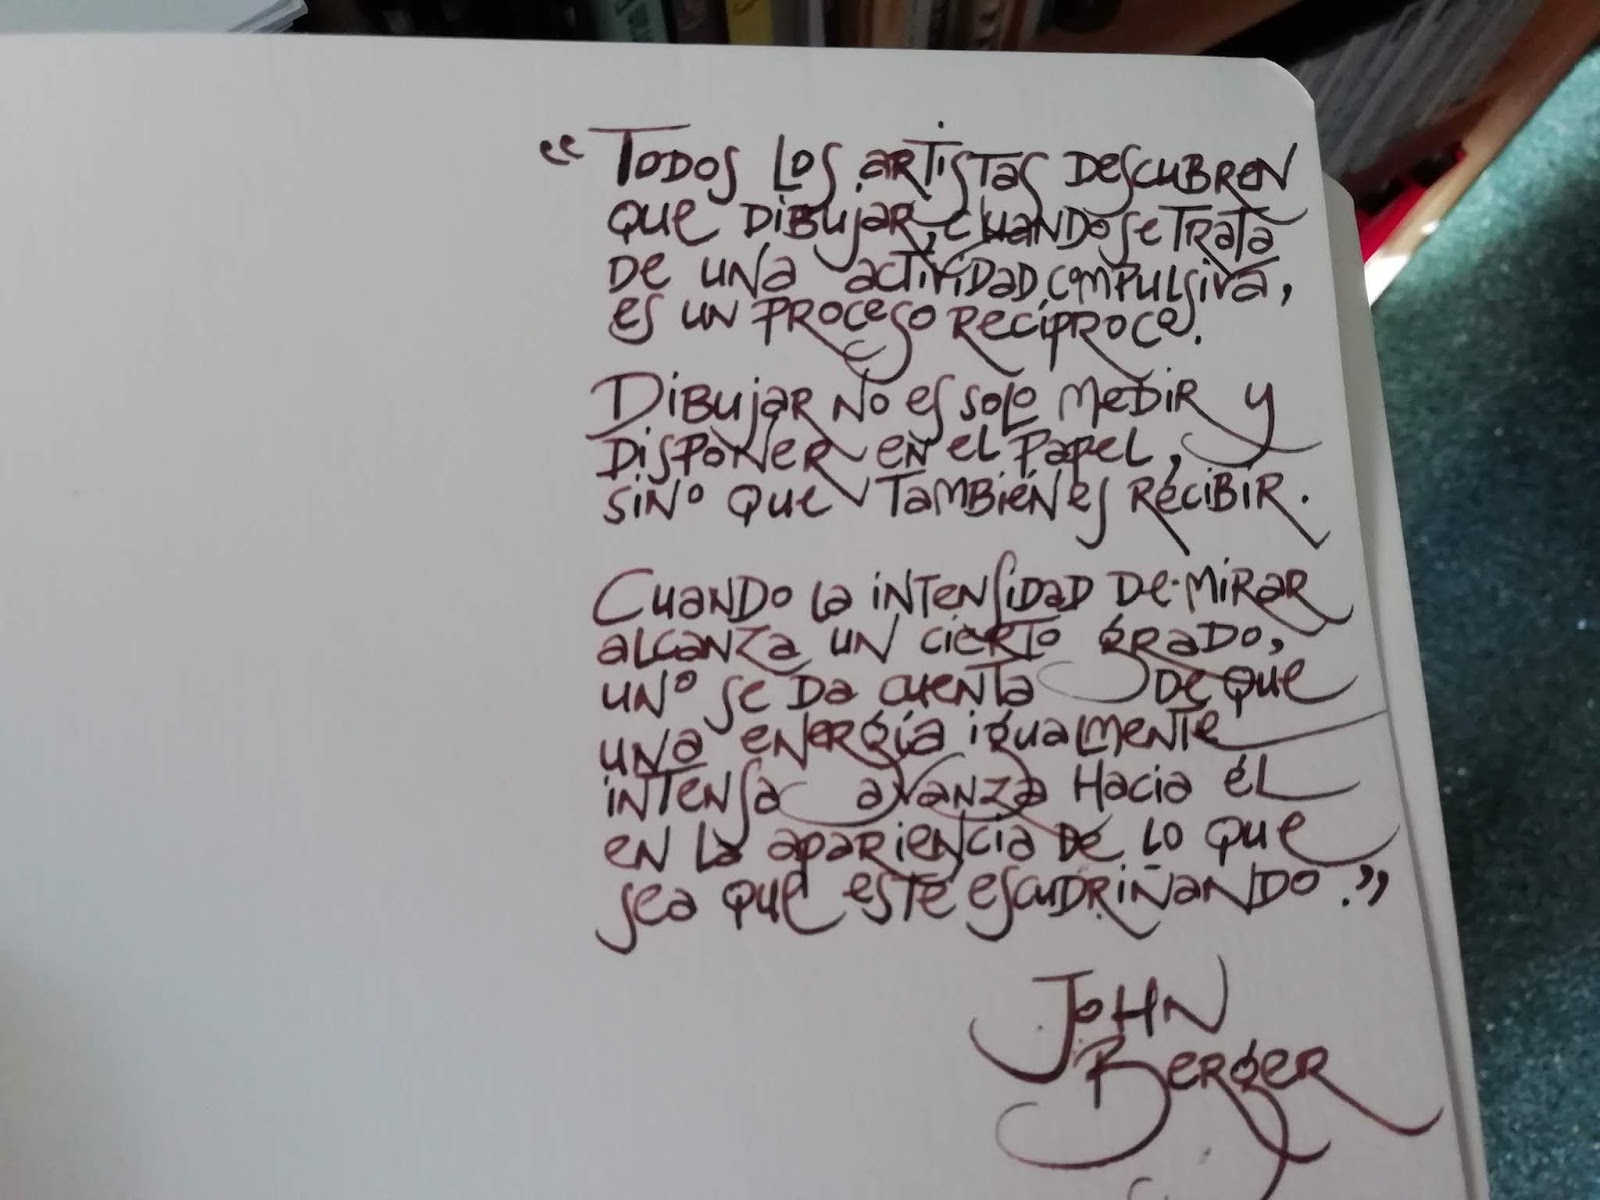 “Todos los artistas descubren
que dibujar, cuando se trata
de una actividad compulsiva,
es un proceso recíproco.
Dibujar no es solo medir y
disponer en el papel,
sino que también es recibir.
Cuando la intensidad de mirar
alcanza un cierto grado,
uno se da cuenta de que
una energía igualmente
intensa avanza hacia él
en la apariencia de lo que
sea que esté escudriñando.”
John
Berger